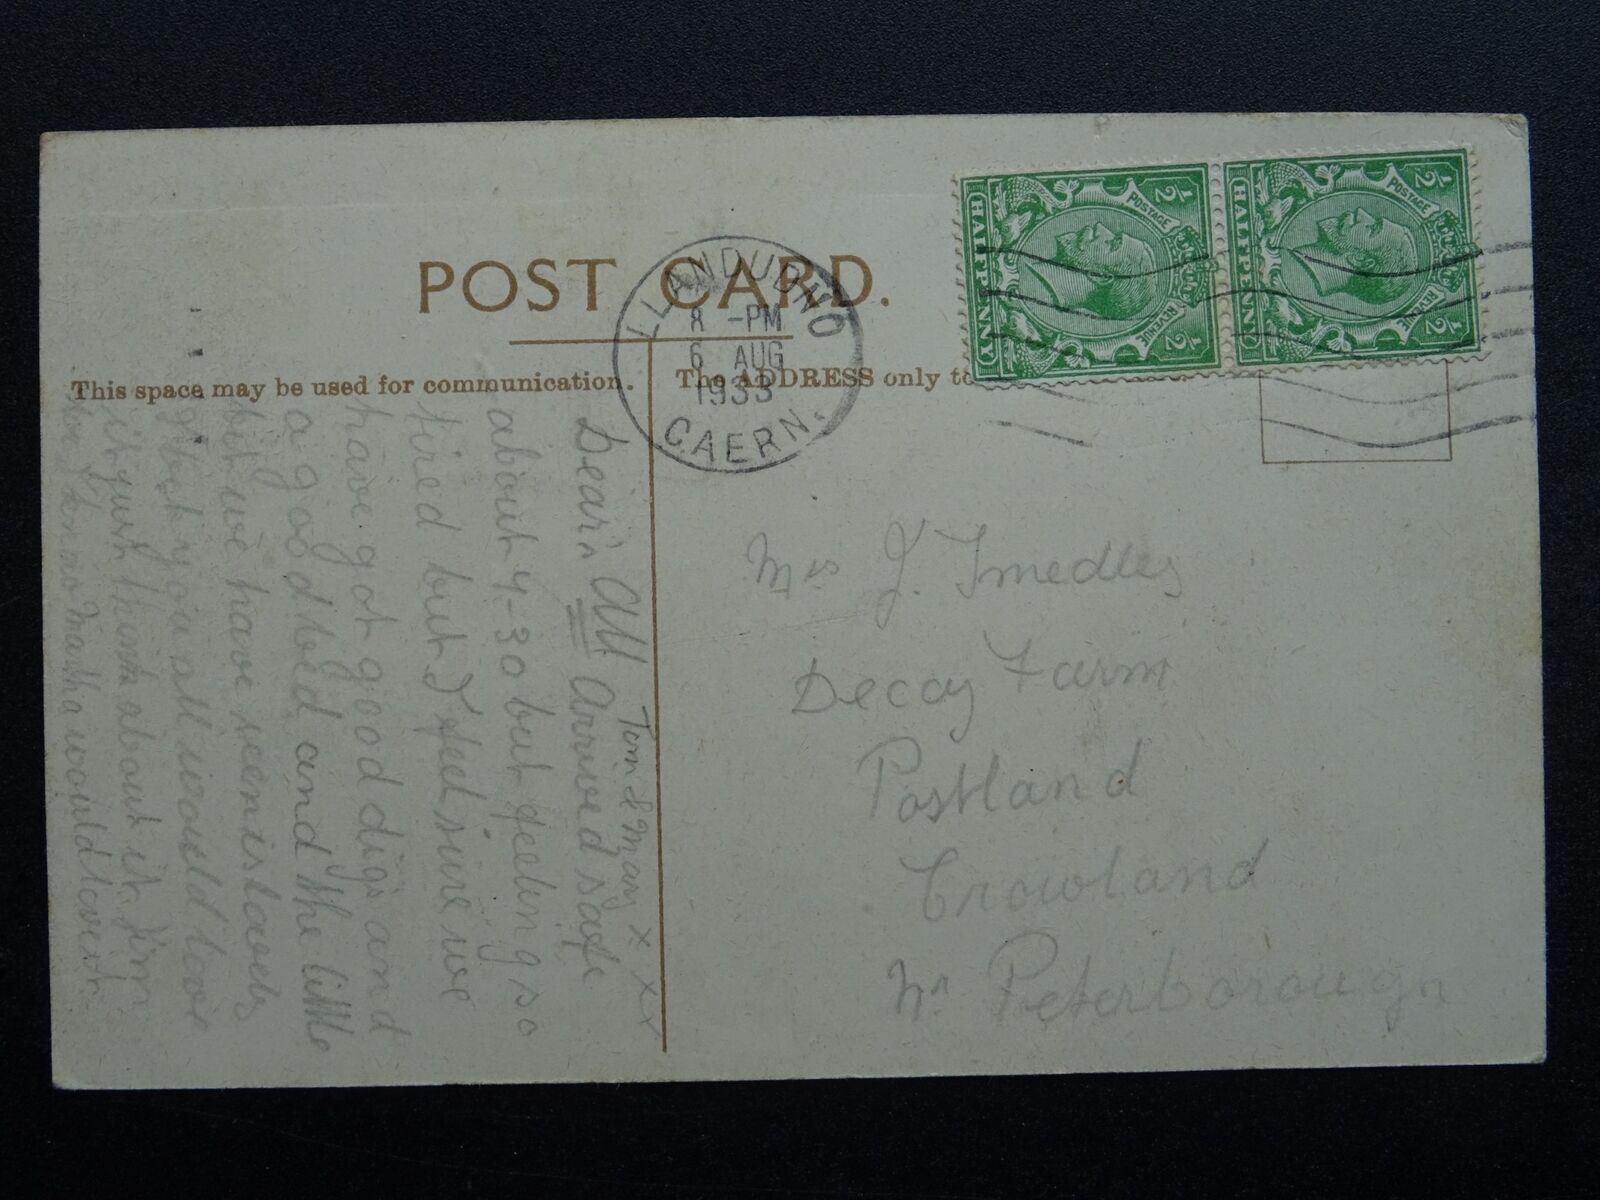 POST CARD.
LLANDUDNO
8 - PM
6 AUG
1933
CAERN.
POSTAGE
REVENUE
½ HALFPENNY ½
POSTAGE
REVENUE
½ HALFPENNY ½
This space may be used for communication.
The ADDRESS only to
Dear All Arrived safe
about 4-30 but feelings so
tired but I feel sure we
have got good digs and
a good bed and the little
bit we have seen is lovely
that you all would love
it just think about it Jim
we know Martha would love it
Tom & Mary x x x
Mrs J. Smedley
Decoy Farm
Postland
Crowland
Nr Peterborough